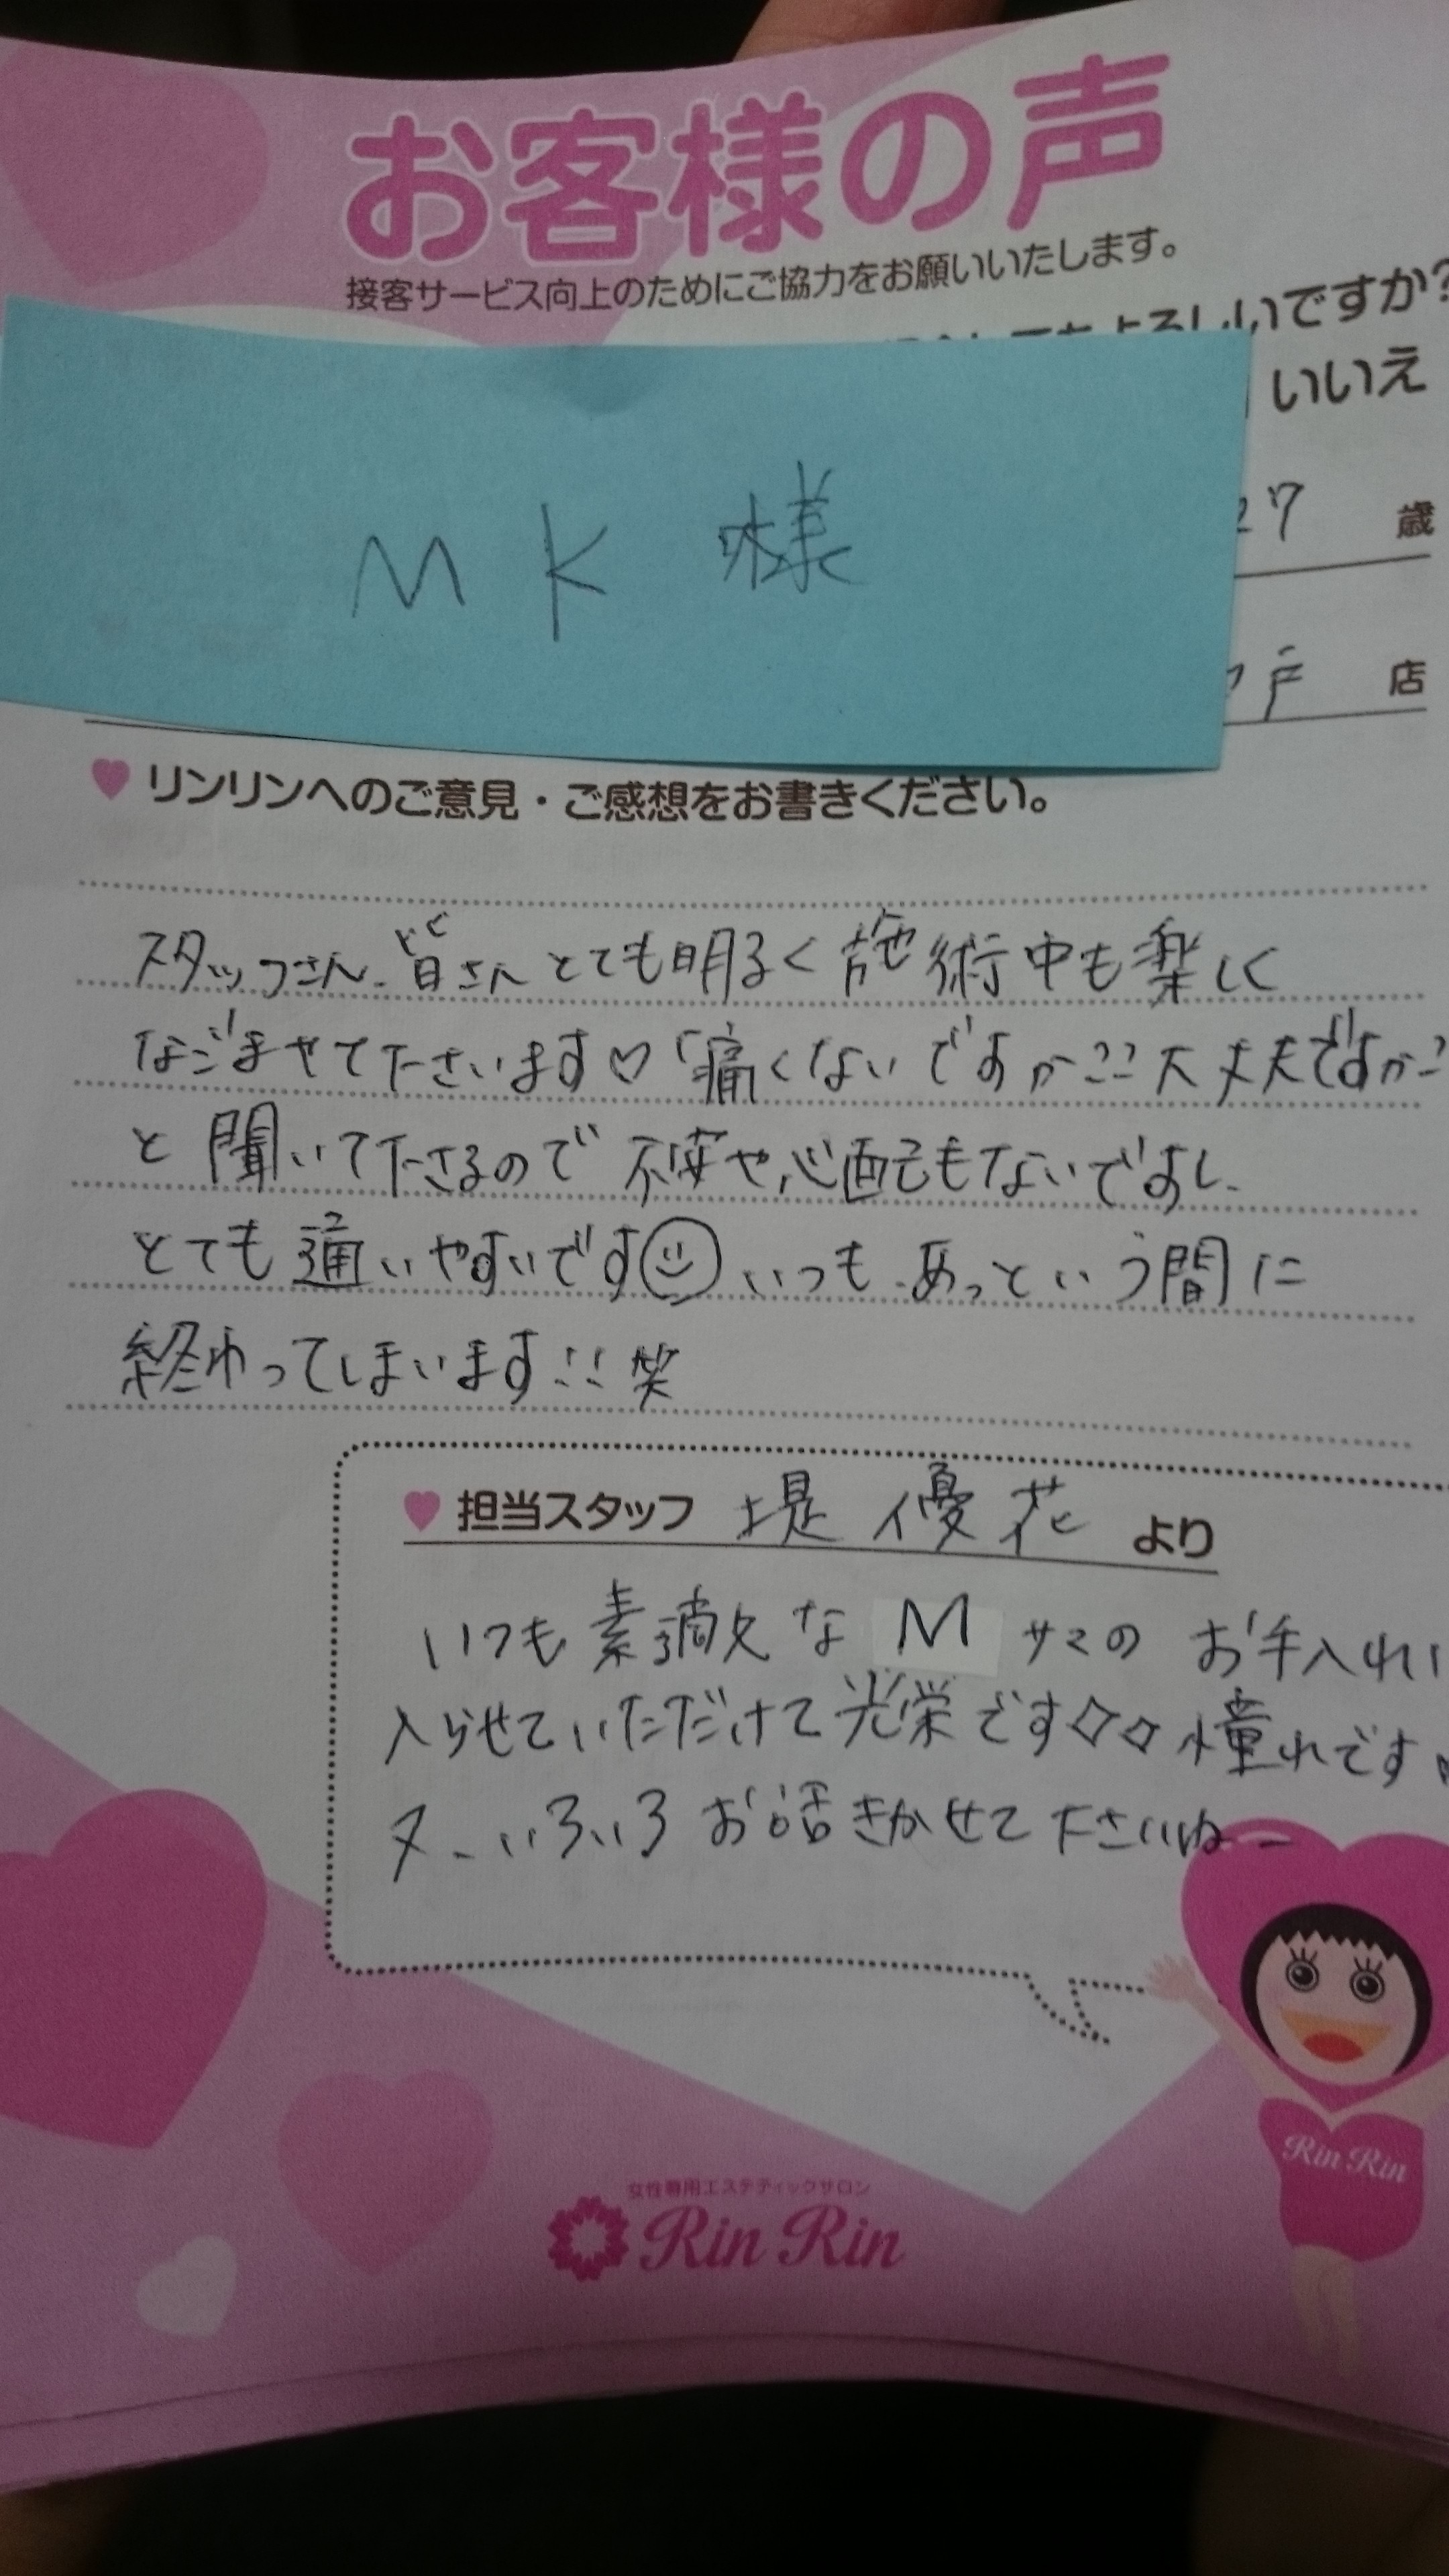 お客様の声
接客サービス向上のためにご協力をお願いいたします。
よろしいですか?
いいえ
M K 様
27 歳
戸 店
リンリンへのご意見・ご感想をお書きください。
スタッフさん、皆さんとても明るく施術中も楽しく
なごませて下さいます♡「痛くないですか??大丈夫ですか?
と聞いて下さるので不安や心配もないですし、
とても通いやすいです☺いつも、あっという間に
終わってしまいます!!笑
担当スタッフ 堤 優花 より
いつも素敵な M サマの お手入れに
入らせていただけて光栄です◇◇憧れです
又、いろいろお話きかせて下さいねー
Rin Rin
女性専用エステティックサロン
Rin Rin